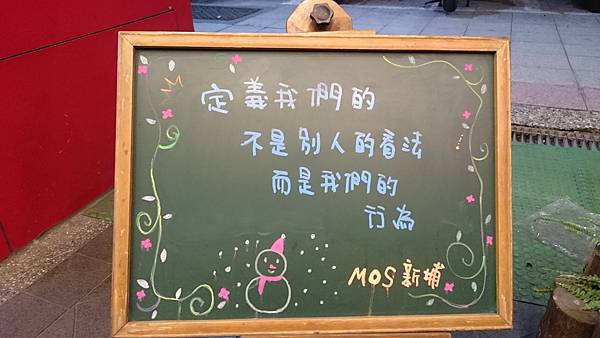 定義我們的
不是別人的看法
而是我們的
行為
MOS新埔